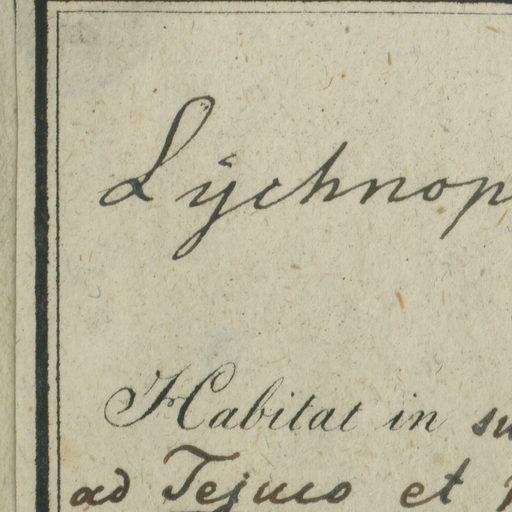 Lÿchnop
Habitat in su
ad Tejuco et